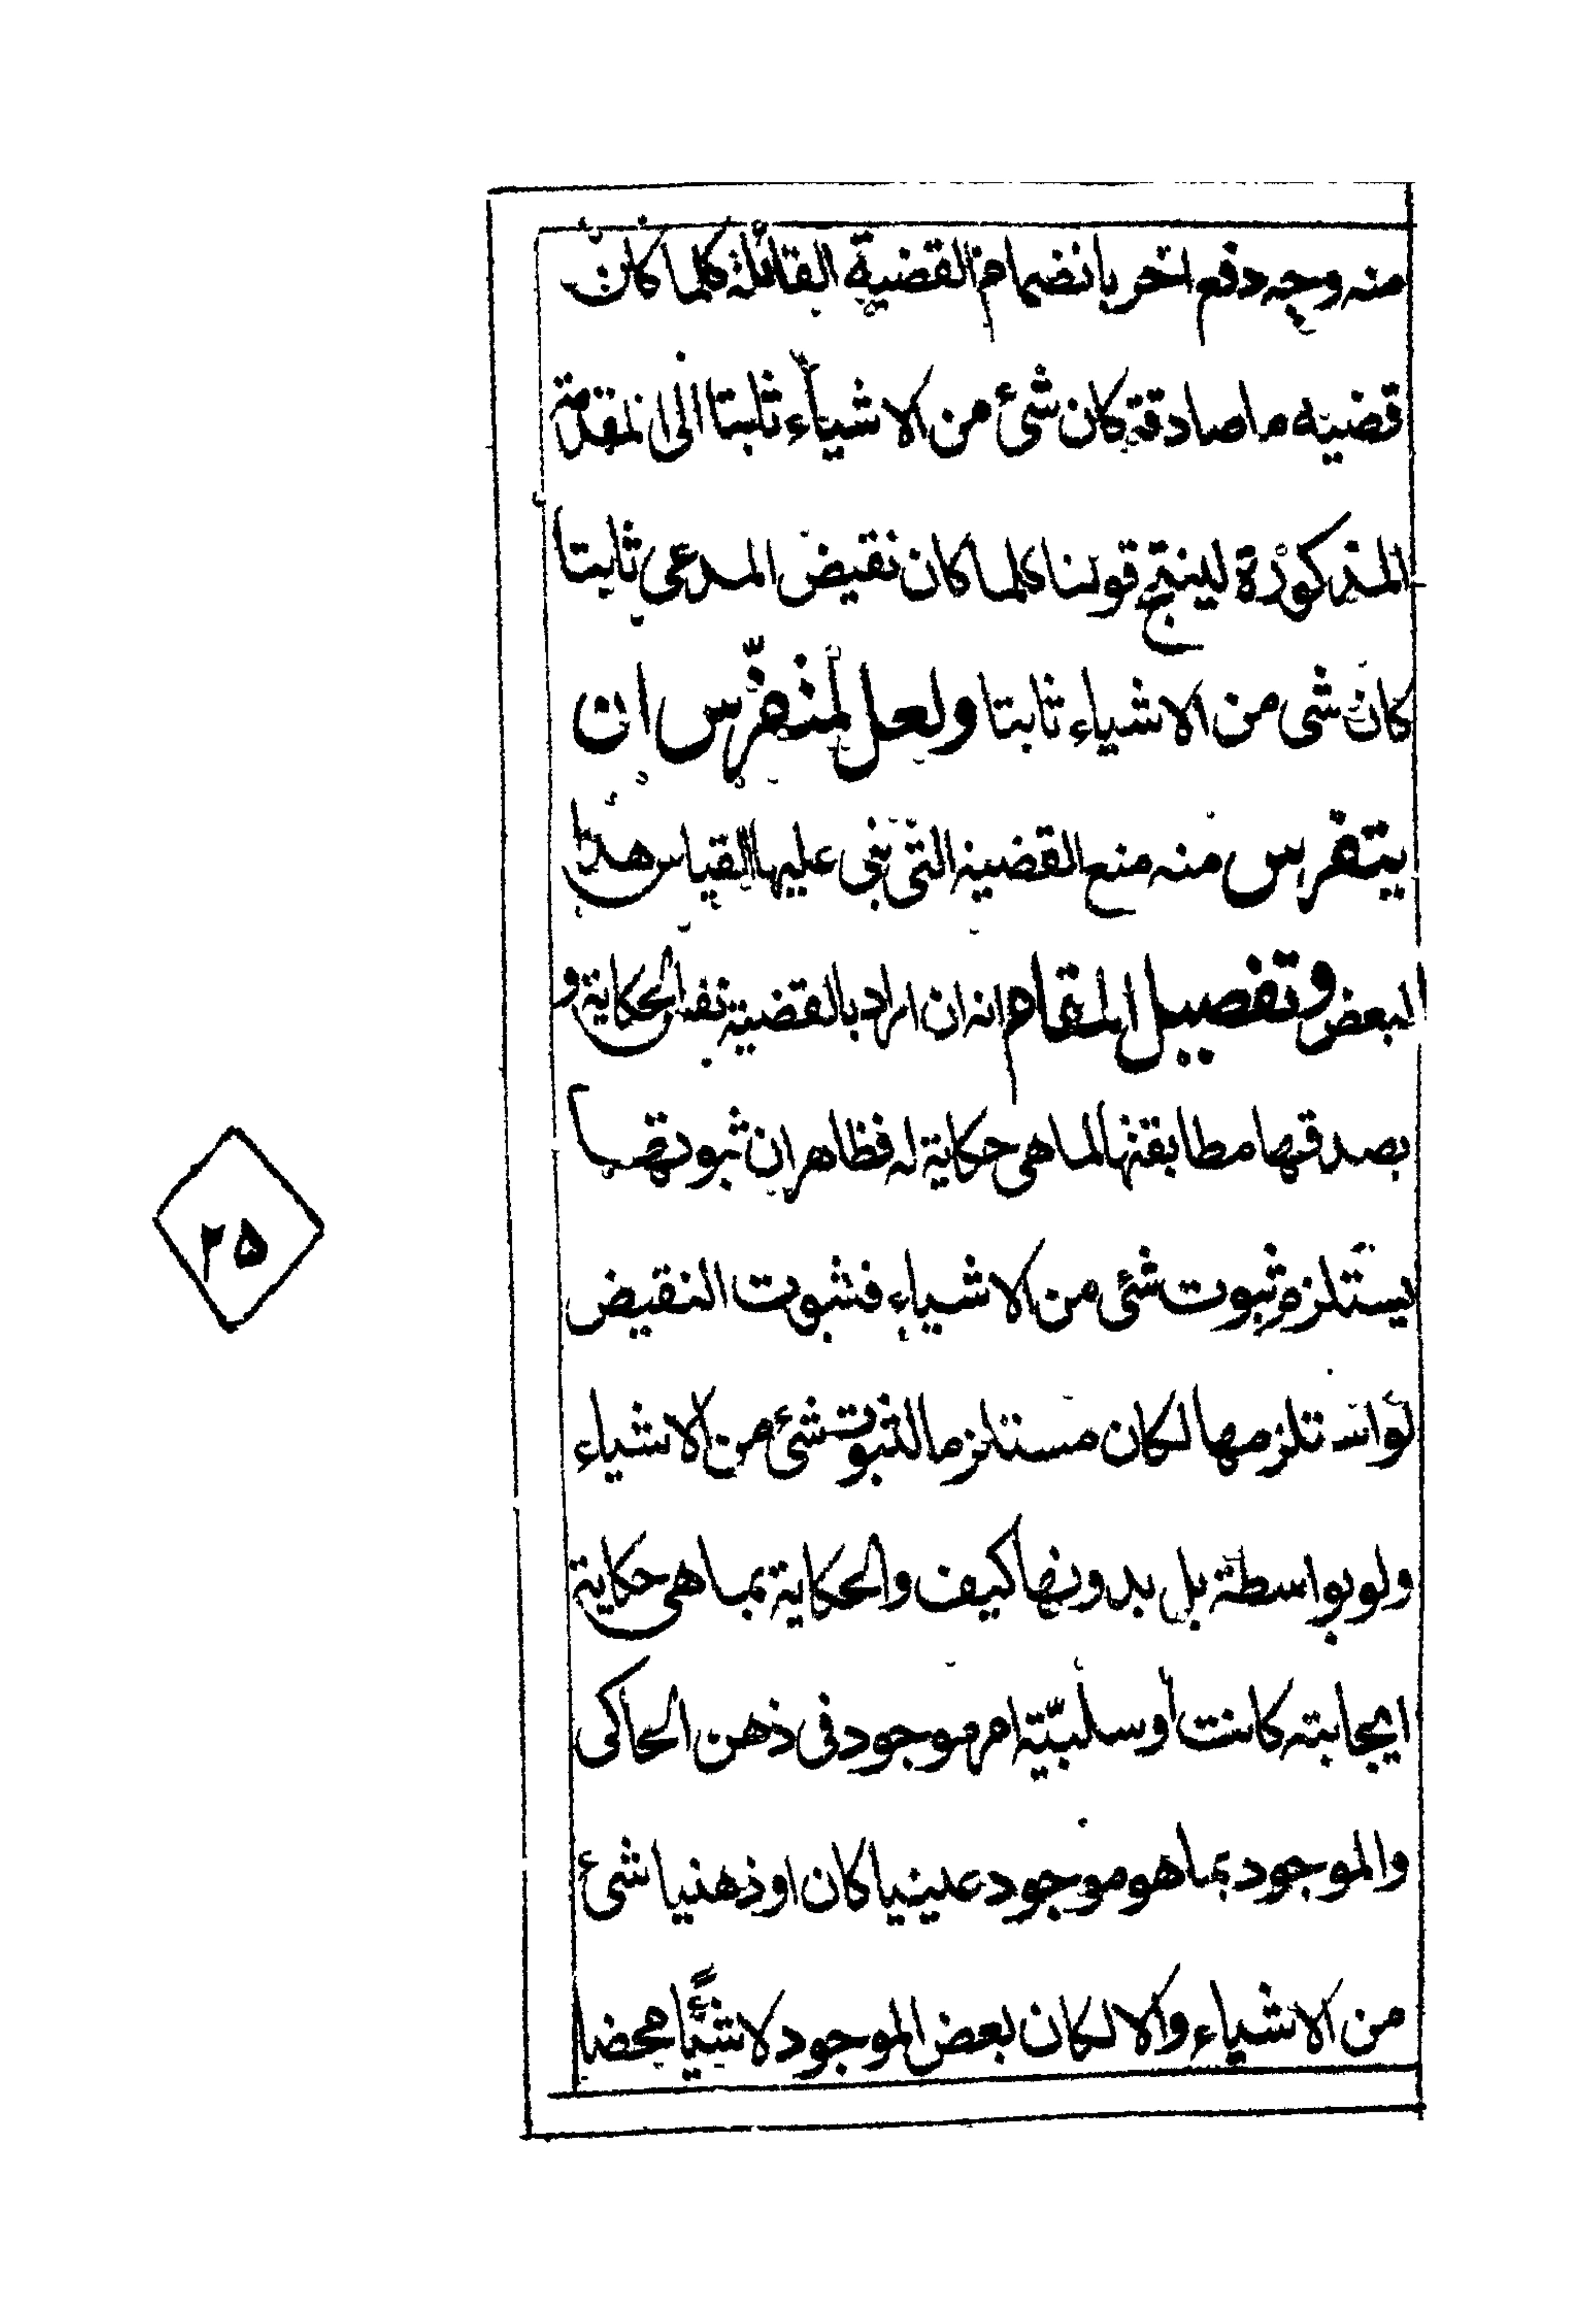 منه وجه دفع اخر بانضمام القضية القائلة كلما كانت
قضيه ما صادقة كان شئ من الاشياء ثابتا الى المقدمة
المذكورة لينتج قولنا كلما كان نقيض المدعى ثابتا
كان شى من الاشياء ثابتا ولعل لمتفرّس ان
يتفرس منه منع القضية التى بنى عليها القياس هذا
البعض وتفصيل المقام انه ان اراد بالقضية نفس الحكاية و
بصدقها مطابقتها لما هى حكاية له فظاهر ان ثبوتها
يستلزم ثبوت شئى من الاشياء فثبوت النقيض
لو استلزمها لكان مستلزما لثبوت شئ من الاشياء
ولو بواسطة بل بدونها كيف والحكاية بما هى حكاية
ايجابية كانت او سلبيّة امر موجود فى ذهن الحاكى
والموجود بما هو موجود عينيا كان او ذهنيا شئ
من الاشياء والا لكان بعض الموجود لا شيئًا محضا
٢٥